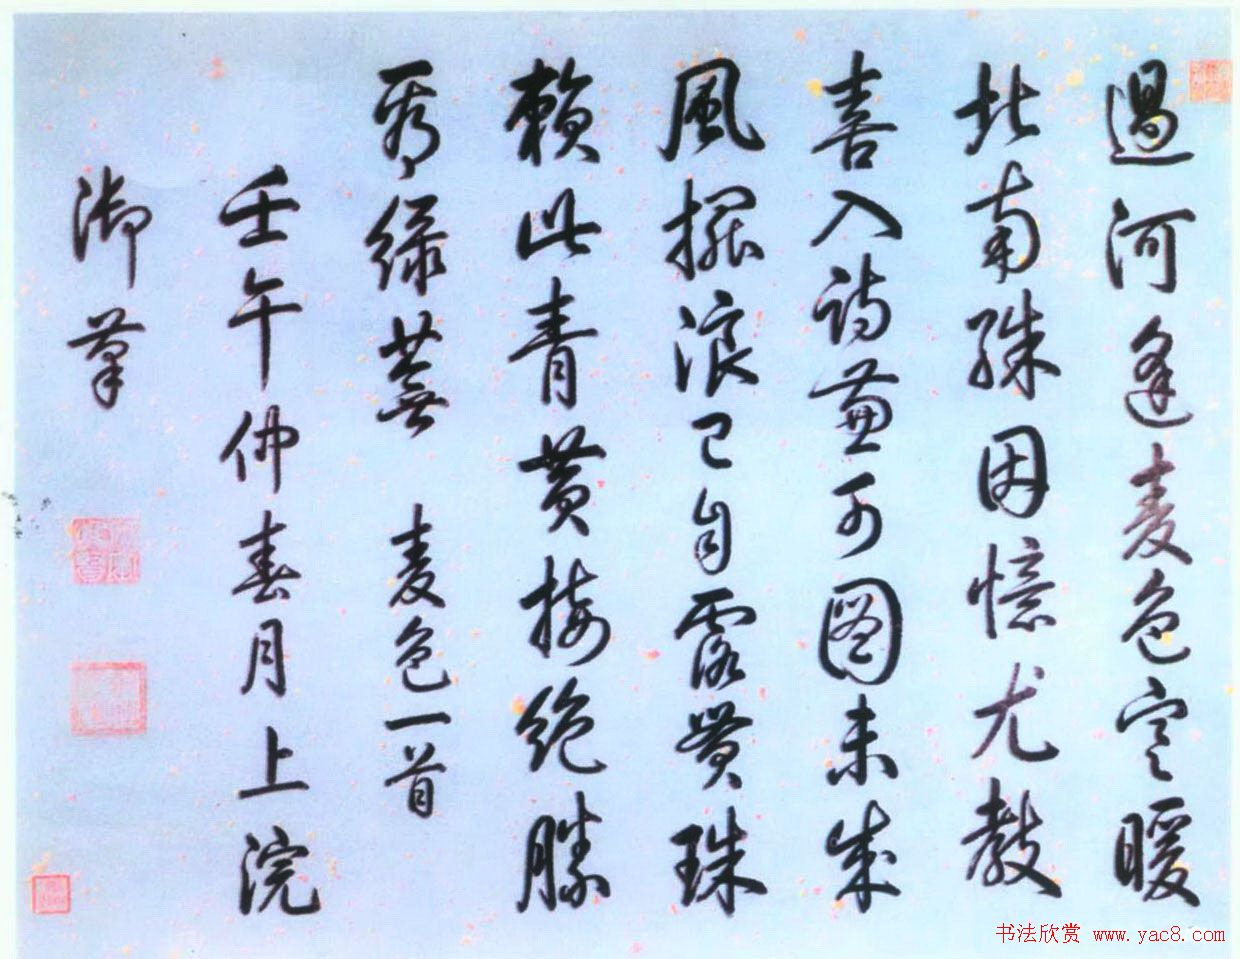 過河逢麦色寒暖
北南殊因憶尤教
喜入詩兼可圖未成
風擺浪已自露貫珠
賴此青黃接絕勝
秀綠蕪 麦色一首
壬午仲春月上浣
御筆
书法欣赏 www.yac8.com